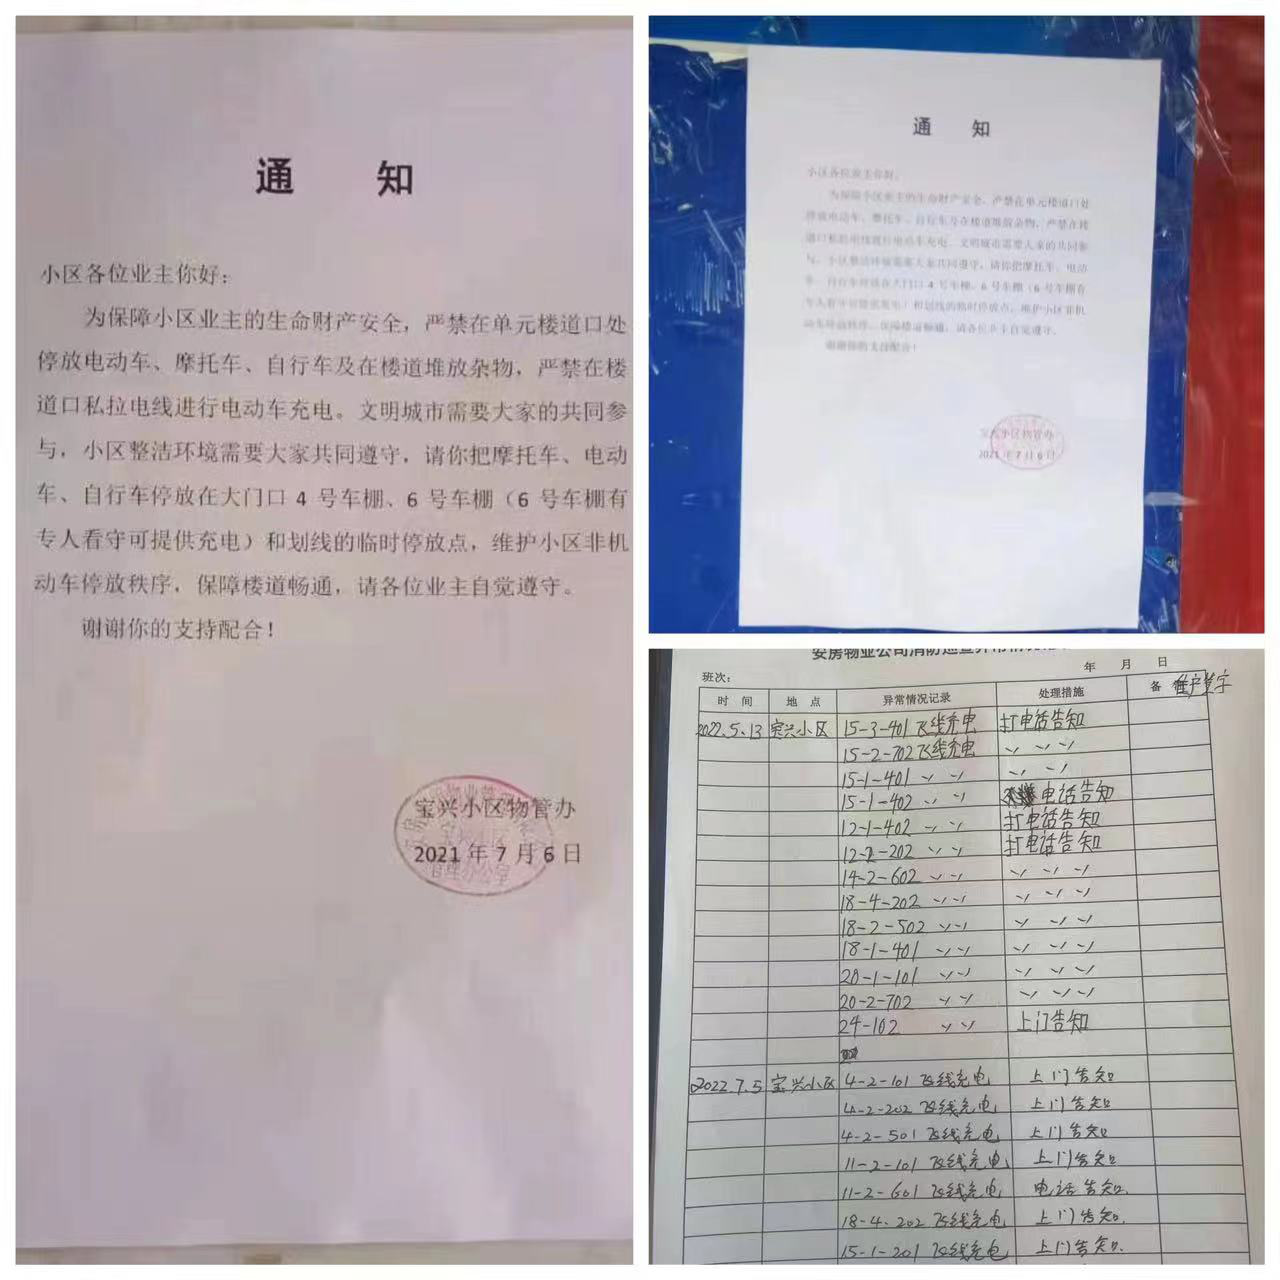 通 知
小区各位业主你好：
为保障小区业主的生命财产安全，严禁在单元楼道口处
停放电动车、摩托车、自行车及在楼道堆放杂物，严禁在楼
道口私拉电线进行电动车充电。文明城市需要大家的共同参
与，小区整洁环境需要大家共同遵守，请你把摩托车、电动
车、自行车停放在大门口 4 号车棚、6 号车棚（6 号车棚有
专人看守可提供充电）和划线的临时停放点，维护小区非机
动车停放秩序，保障楼道畅通，请各位业主自觉遵守。
谢谢你的支持配合！
宝兴小区物管办
2021 年 7 月 6 日
管理办公室
通 知
小区各位业主你好：
为保障小区业主的生命财产安全，严禁在单元楼道口处
停放电动车、摩托车、自行车及在楼道堆放杂物，严禁在楼
道口私拉电线进行电动车充电。文明城市需要大家的共同参
与，小区整洁环境需要大家共同遵守，请你把摩托车、电动
车、自行车停放在大门口 4 号车棚、6 号车棚（6 号车棚有
专人看守可提供充电）和划线的临时停放点，维护小区非机
动车停放秩序，保障楼道畅通，请各位业主自觉遵守。
谢谢你的支持配合！
宝兴小区物管办
2021 年 7 月 6 日
安房物业公司消防巡查异常情况
班次： 年 月 日
时 间 地 点 异常情况记录 处理措施 备 住户签字
2022.5.13 宝兴小区 15-3-401 飞线充电 打电话告知
15-2-702 飞线充电 〃 〃 〃
15-1-401 〃 〃 〃 〃
15-1-402 〃 〃 电话告知
12-1-402 〃 〃 打电话告知
12-2-202 〃 〃 打电话告知
14-2-602 〃 〃 〃 〃 〃
18-4-202 〃 〃 〃 〃 〃
18-2-502 〃 〃 〃 〃 〃
18-1-401 〃 〃 〃 〃 〃
20-1-101 〃 〃 〃 〃 〃
20-2-702 〃 〃 〃 〃 〃
24-102 〃 〃 上门告知
2022.7.5 宝兴小区 4-2-101 飞线充电 上门告知
4-2-202 飞线充电 上门告知
4-2-501 飞线充电 上门告知
11-2-101 飞线充电 上门告知
11-2-601 飞线充电 电话告知.
18-4.202 飞线充电 上门告知.
15-1-201 飞线充电 上门告知.